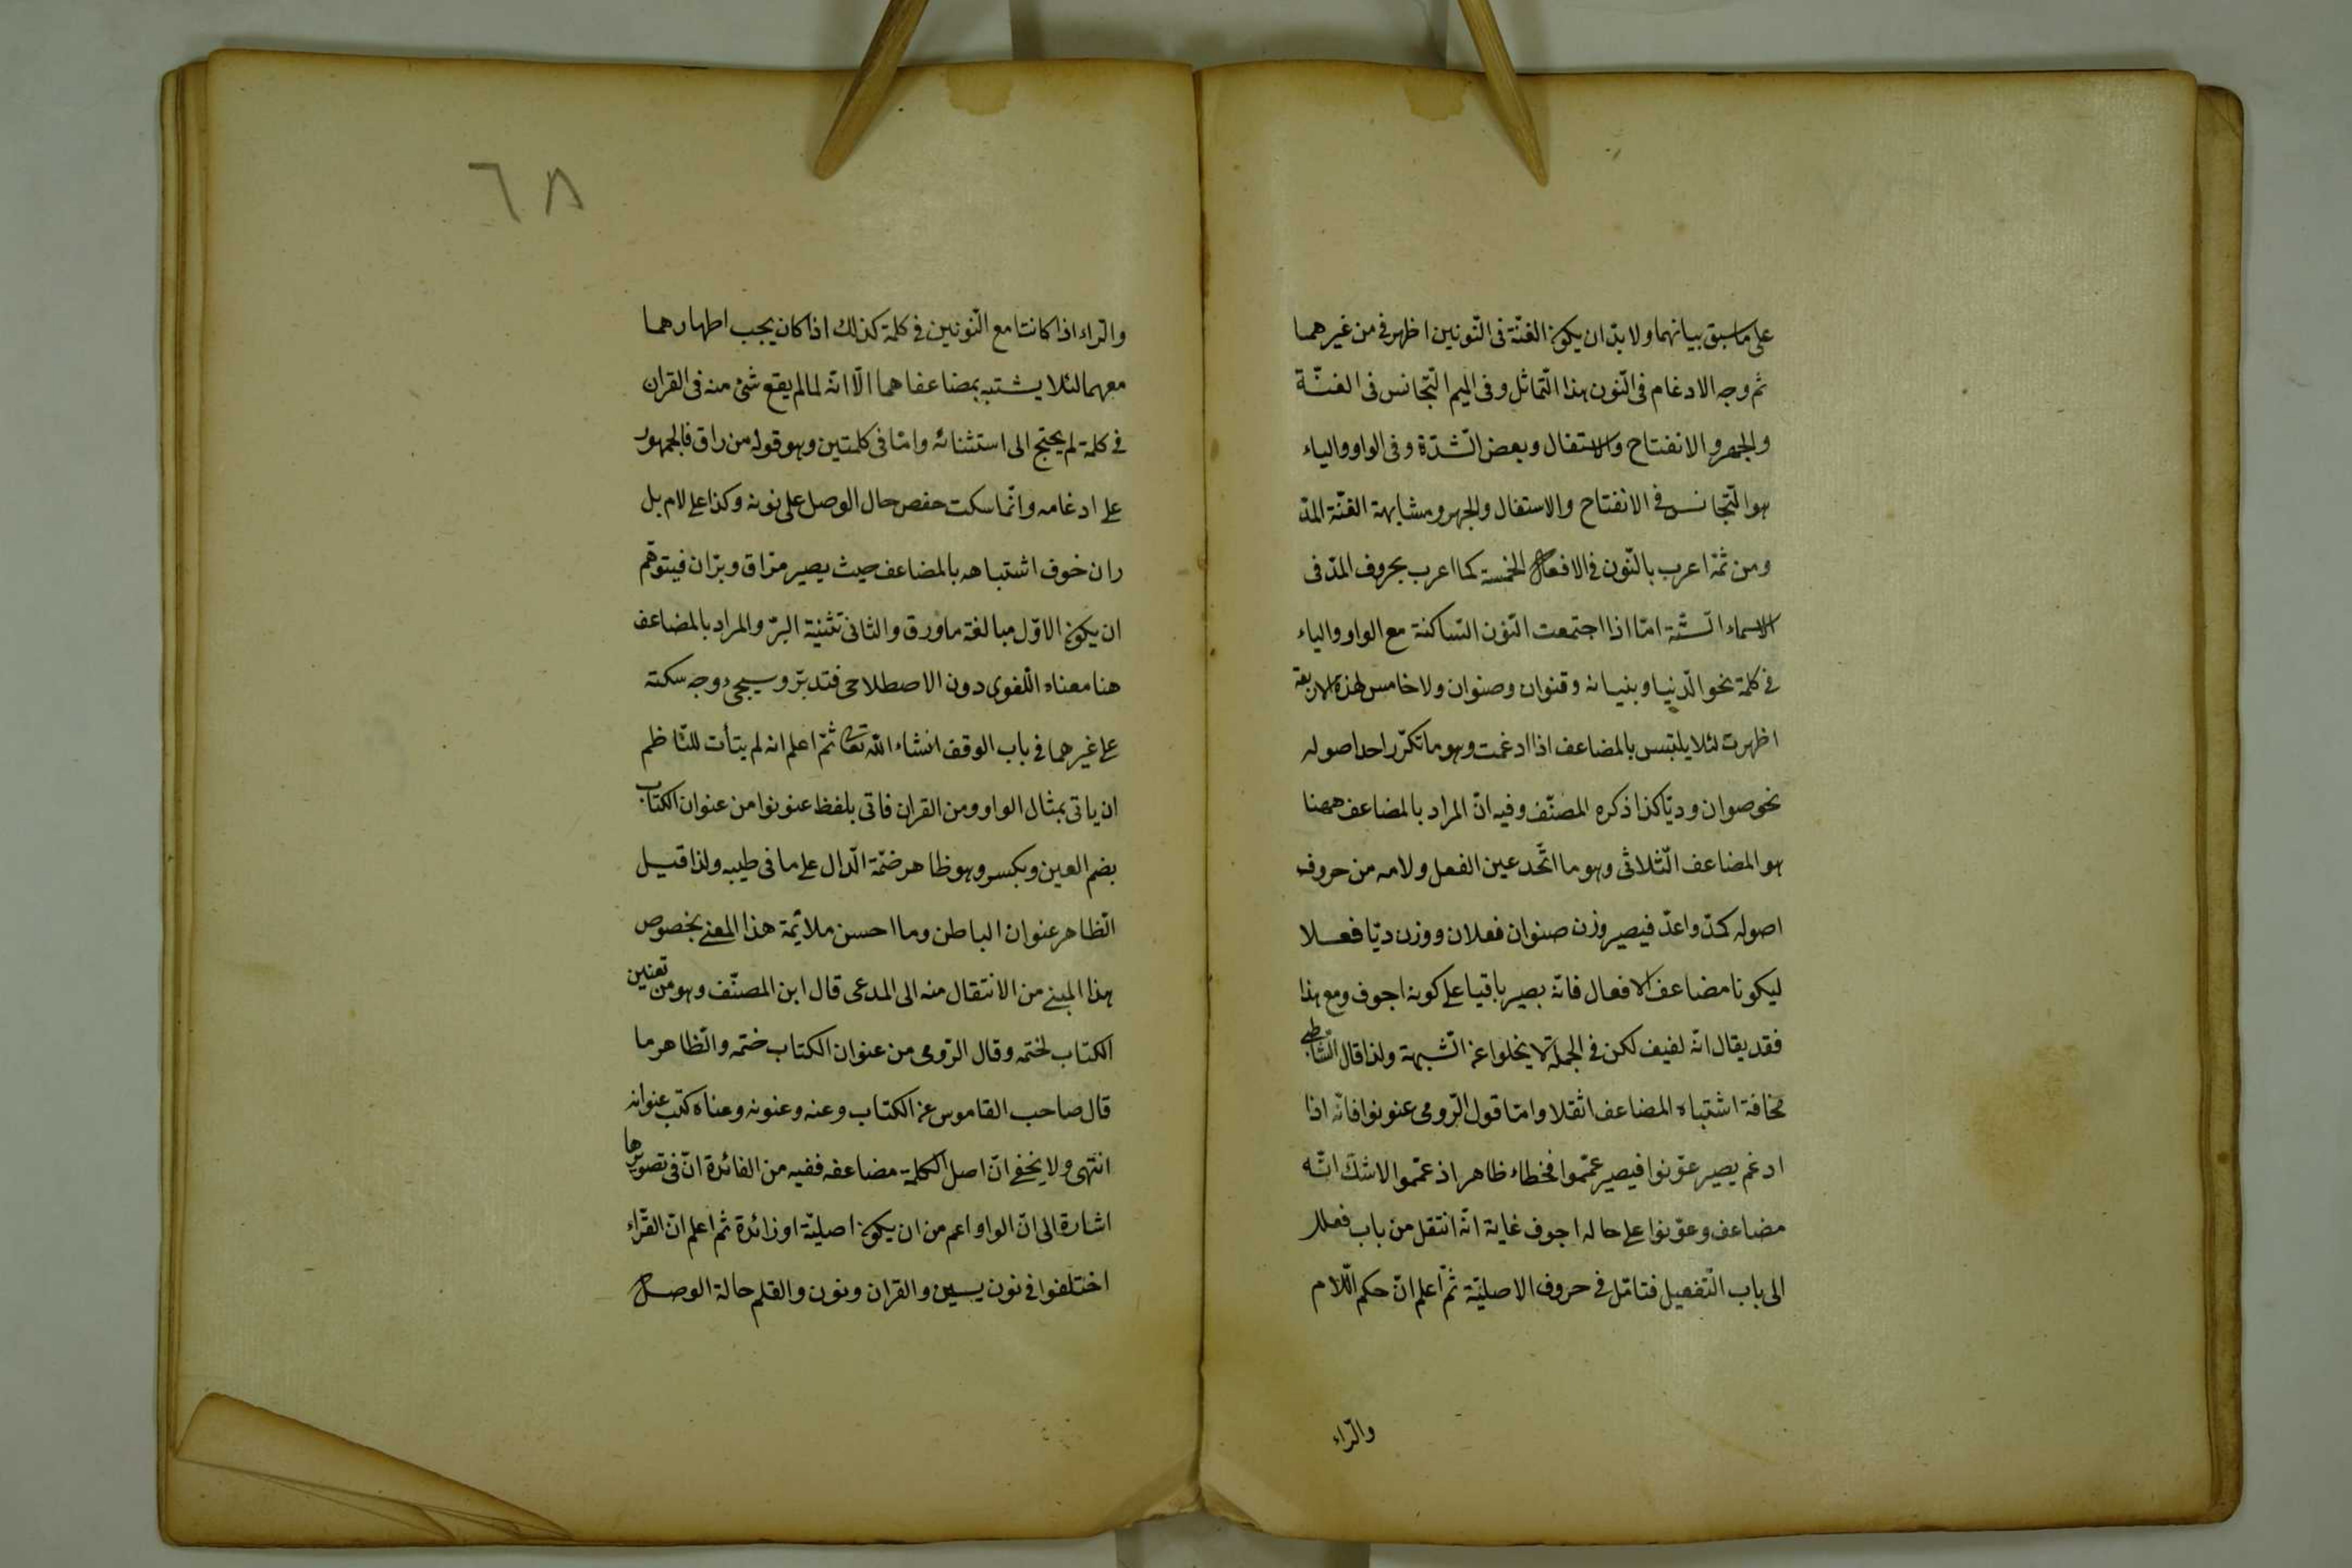 على ما سبق بيانهما ولا بدّ ان يكون الغنّة فى النّونين اظهر فى من غيرهما
ثم وجه الادغام فى النّون هذا التّماثل وفى الميم التّجانس فى الغنّة
والجهر والانفتاح والاستفال وبعض الشّدّة وفى الواو والياء
هو التّجانس فى الانفتاح والاستفال والجهر ومشابهة الغنّة المدّ
ومن ثمّة اعرب بالنّون فى الافعال الخمسة كما اعرب بحروف المدّ فى
الاسماء السّتّة امّا اذا اجتمعت النّون السّاكنة مع الواو والياء
فى كلمة نحو الدّنيا وبنيانه وقنوان وصنوان ولا خامس لهذه الاربعة
اظهرت لئلا يلتبس بالمضاعف اذا ادغمت وهو ما تكرّر احد اصوله
نحو صوان وديّا كذا ذكره المصنّف وفيه انّ المراد بالمضاعف ههنا
هو المضاعف الثّلاثى وهو ما اتّحد عين الفعل ولامه من حروف
اصوله كمدّ واعدّ فيصير وزن صنوان فعلان ووزن ديّا فعلا
ليكونا مضاعف الافعال فانّه يصير باقيا على كونه اجوف ومع هذا
فقد يقال انّه لفيف لكن فى الجملة لا يخلوا عن الشّبهة ولذا قال الشّاطبى
مخافة اشتباه المضاعف اثقلا وامّا قول الرّومى عنونوا فانّه اذا
ادغم يصير عوّنوا فيصير عمّموا فخطاء ظاهر اذ عمّموا لا شكّ انّه
مضاعف وعوّنوا على حاله اجوف غاية انّه انتقل من باب فعلل
الى باب التّفعيل فتامّل فى حروف الاصليّة ثمّ اعلم انّ حكم اللّام
والرّاء
٦٨
والرّاء اذا كانتا مع النّونين فى كلمة كذلك اذا كان يجب اظهارهما
معهما لئلا يشتبه بمضاعفاهما الّا انّه لما لم يقع شئ منه فى القران
فى كلمة لم يحتج الى استثنائه وامّا فى كلمتين وهو قوله من راق فالجمهور
على ادغامه وانّما سكت حفص حال الوصل على نونه وكذا على لام بل
ران خوف اشتباهه بالمضاعف حيث يصير مرّاق وبرّان فيتوهّم
ان يكون الاوّل مبالغة ماورق والثانى تثنية البرّ والمراد بالمضاعف
هنا معناه اللّغوى دون الاصطلاحى فتدبّر وسيجىء وجه سكته
على غيرهما فى باب الوقف انشاء اللّه تعالى ثمّ اعلم انه لم يتأت للنّاظم
ان ياتى بمثال الواو ومن القران فاتى بلفظ عنونوا من عنوان الكتاب
بضم العين وبكسر وهو ظاهر ضمّة الدّال على ما فى طيبه ولذا قيل
الظّاهر عنوان الباطن وما احسن ملائمة هذا المعنى بخصوص
هذا المبنى من الانتقال منه الى المدعى قال ابن المصنّف وهو من تعنين
الكتاب لختمه وقال الرّومى من عنوان الكتاب ختمه والظّاهر ما
قال صاحب القاموس عن الكتاب وعنه وعنونه وعناه كتب عنوانه
انتهى ولا يخفى انّ اصل الكلمة مضاعفه ففيه من الفائدة انّ فى تصويرها
اشارة الى انّ الواو اعم من ان يكون اصليّة او زائدة ثم اعلم انّ القرّاء
اختلفوا فى نون يسين والقران ونون والقلم حالة الوصل